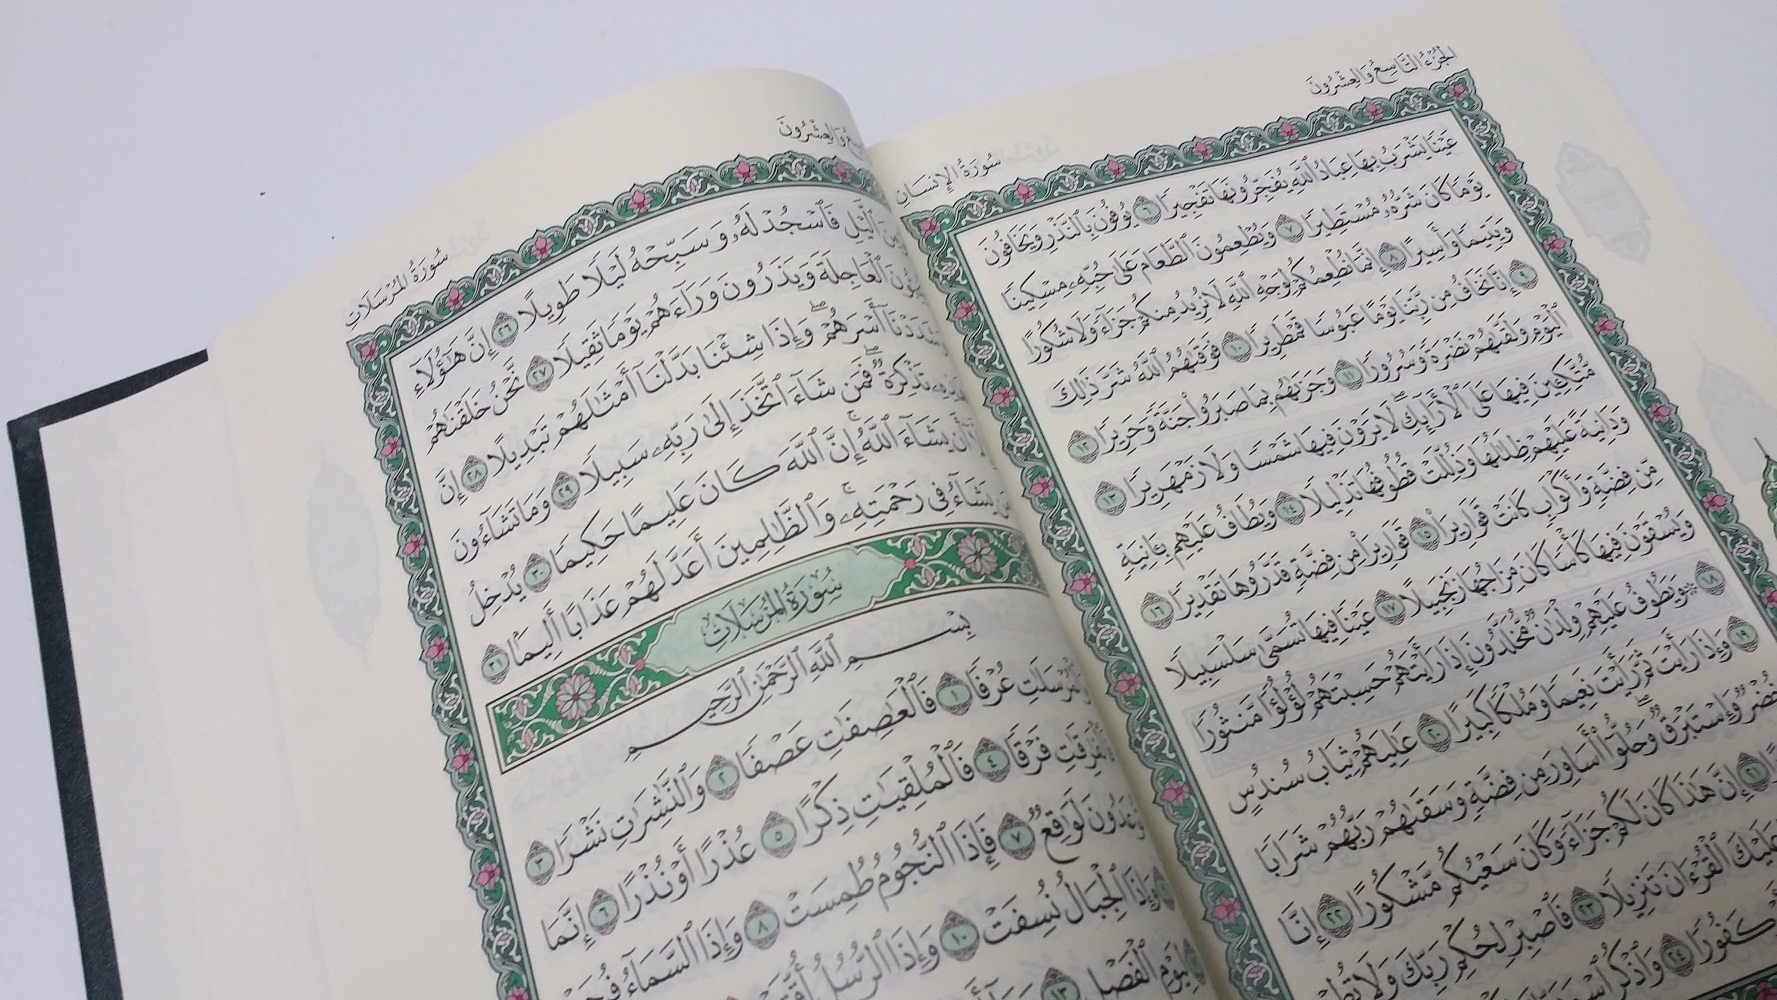 الجُزْءُ التَّاسِعُ وَالعِشْرُونَ
سُورَةُ الإِنسَانِ
عَيْنًا يَشْرَبُ بِهَا عِبَادُ ٱللَّهِ يُفَجِّرُونَهَا تَفْجِيرًا ٦ يُوفُونَ بِٱلنَّذْرِ وَيَخَافُونَ
يَوْمًا كَانَ شَرُّهُۥ مُسْتَطِيرًا ٧ وَيُطْعِمُونَ ٱلطَّعَامَ عَلَىٰ حُبِّهِۦ مِسْكِينًا
وَيَتِيمًا وَأَسِيرًا ٨ إِنَّمَا نُطْعِمُكُمْ لِوَجْهِ ٱللَّهِ لَا نُرِيدُ مِنكُمْ جَزَآءً وَلَا شُكُورًا
٩ إِنَّا نَخَافُ مِن رَّبِّنَا يَوْمًا عَبُوسًا قَمْطَرِيرًا ١٠ فَوَقَىٰهُمُ ٱللَّهُ شَرَّ ذَٰلِكَ
ٱلْيَوْمِ وَلَقَّىٰهُمْ نَضْرَةً وَسُرُورًا ١١ وَجَزَىٰهُم بِمَا صَبَرُوا۟ جَنَّةً وَحَرِيرًا ١٢
مُّتَّكِـِٔينَ فِيهَا عَلَى ٱلْأَرَآئِكِ ۖ لَا يَرَوْنَ فِيهَا شَمْسًا وَلَا زَمْهَرِيرًا ١٣
وَدَانِيَةً عَلَيْهِمْ ظِلَـٰلُهَا وَذُلِّلَتْ قُطُوفُهَا تَذْلِيلًا ١٤ وَيُطَافُ عَلَيْهِم بِـَٔانِيَةٍ
مِّن فِضَّةٍ وَأَكْوَابٍ كَانَتْ قَوَارِيرَا۠ ١٥ قَوَارِيرَا۟ مِن فِضَّةٍ قَدَّرُوهَا تَقْدِيرًا ١٦
وَيُسْقَوْنَ فِيهَا كَأْسًا كَانَ مِزَاجُهَا زَنجَبِيلًا ١٧ عَيْنًا فِيهَا تُسَمَّىٰ سَلْسَبِيلًا
١٨ ۞ وَيَطُوفُ عَلَيْهِمْ وِلْدَٰنٌ مُّخَلَّدُونَ إِذَا رَأَيْتَهُمْ حَسِبْتَهُمْ لُؤْلُؤًا مَّنثُورًا
١٩ وَإِذَا رَأَيْتَ ثَمَّ رَأَيْتَ نَعِيمًا وَمُلْكًا كَبِيرًا ٢٠ عَـٰلِيَهُمْ ثِيَابُ سُندُسٍ
خُضْرٌ وَإِسْتَبْرَقٌ ۖ وَحُلُّوٓا۟ أَسَاوِرَ مِن فِضَّةٍ وَسَقَىٰهُمْ رَبُّهُمْ شَرَابًا
٢١ إِنَّ هَـٰذَا كَانَ لَكُمْ جَزَآءً وَكَانَ سَعْيُكُم مَّشْكُورًا ٢٢ إِنَّا
عَلَيْكَ ٱلْقُرْءَانَ تَنزِيلًا ٢٣ فَٱصْبِرْ لِحُكْمِ رَبِّكَ وَلَا تُطِعْ
كَفُورًا ٢٤ وَٱذْكُرِ
وَالعِشْرُونَ
سُورَةُ المُرْسَلَاتِ
ٱلَّيْلِ فَٱسْجُدْ لَهُۥ وَسَبِّحْهُ لَيْلًا طَوِيلًا ٢٦ إِنَّ هَـٰٓؤُلَآءِ
ٱلْعَاجِلَةَ وَيَذَرُونَ وَرَآءَهُمْ يَوْمًا ثَقِيلًا ٢٧ نَّحْنُ خَلَقْنَـٰهُمْ
وَشَدَدْنَآ أَسْرَهُمْ ۖ وَإِذَا شِئْنَا بَدَّلْنَآ أَمْثَـٰلَهُمْ تَبْدِيلًا ٢٨ إِنَّ
هَـٰذِهِۦ تَذْكِرَةٌ ۖ فَمَن شَآءَ ٱتَّخَذَ إِلَىٰ رَبِّهِۦ سَبِيلًا ٢٩ وَمَا تَشَآءُونَ
أَن يَشَآءَ ٱللَّهُ ۚ إِنَّ ٱللَّهَ كَانَ عَلِيمًا حَكِيمًا ٣٠ يُدْخِلُ
مَن يَشَآءُ فِى رَحْمَتِهِۦ ۚ وَٱلظَّـٰلِمِينَ أَعَدَّ لَهُمْ عَذَابًا أَلِيمًۢا ٣١
سُورَةُ المُرْسَلَاتِ
بِسْمِ ٱللَّهِ ٱلرَّحْمَـٰنِ ٱلرَّحِيمِ
وَٱلْمُرْسَلَـٰتِ عُرْفًا ١ فَٱلْعَـٰصِفَـٰتِ عَصْفًا ٢ وَٱلنَّـٰشِرَٰتِ نَشْرًا ٣
فَٱلْفَـٰرِقَـٰتِ فَرْقًا ٤ فَٱلْمُلْقِيَـٰتِ ذِكْرًا ٥ عُذْرًا أَوْ نُذْرًا ٦ إِنَّمَا
تُوعَدُونَ لَوَٰقِعٌ ٧ فَإِذَا ٱلنُّجُومُ طُمِسَتْ ٨ وَإِذَا ٱلسَّمَآءُ
وَإِذَا ٱلْجِبَالُ نُسِفَتْ ١٠ وَإِذَا ٱلرُّسُلُ
لِيَوْمِ ٱلْفَصْلِ ١٣